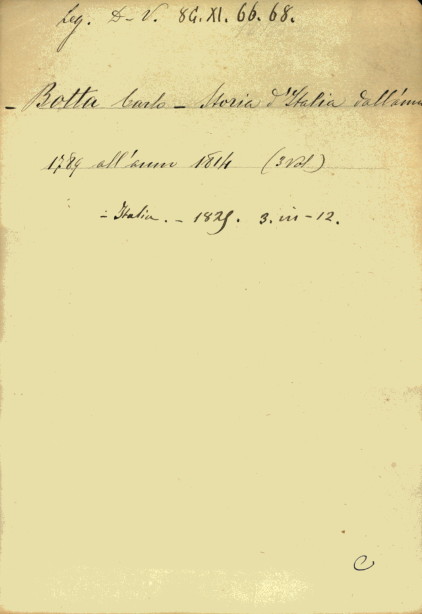 Leg. D-V. 8G.XI.66.68.
- Botta Carlo - Storia d'Italia dall'anno
1789 all'anno 1814 (3 Vol)
- Italia. - 1825. 3. in-12.
C